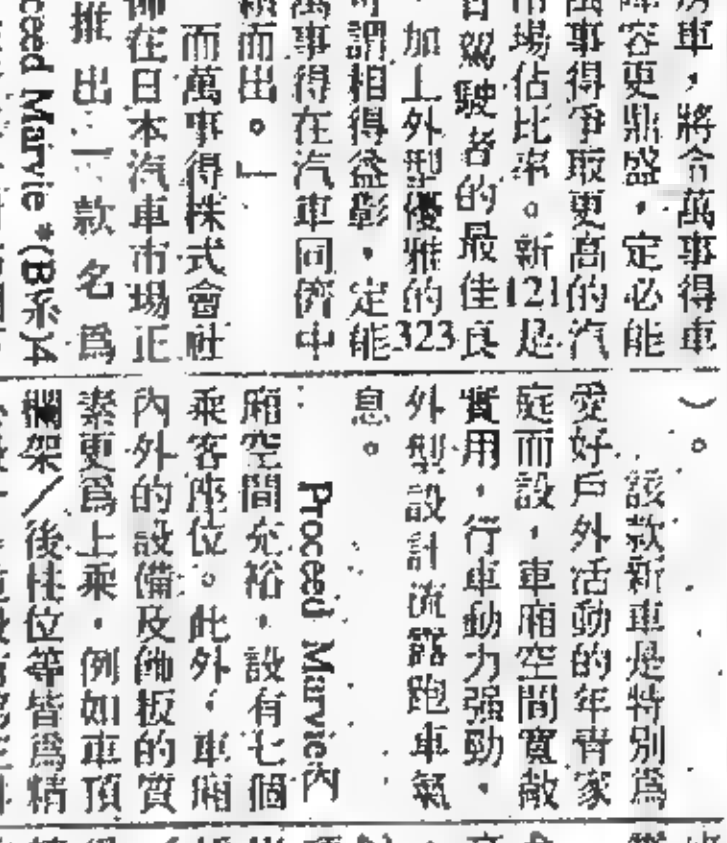 房車，將令萬事得車
陣容更鼎盛，定必能
萬事得爭取更高的汽
市場佔比率。新121是
駕駛者的最佳良
加上外型優雅的323
謂相得益彰，定能
萬事得在汽車同儕中
穎而出。」
而萬事得株式會社
在日本汽車市場正
推出一款名爲
ceed Marvie *(B系
）。
該款新車是特別爲
愛好戶外活動的年青家
庭而設，車廂空間寬敞
實用，行車動力强勁，
外型設計流露跑車氣
息。
Proceed Marvie內
廂空間充裕，設有七個
乘客座位。此外，車廂
內外的設備及飾板的質
素更爲上乘，例如車頂
欄架／後柱位等皆爲精